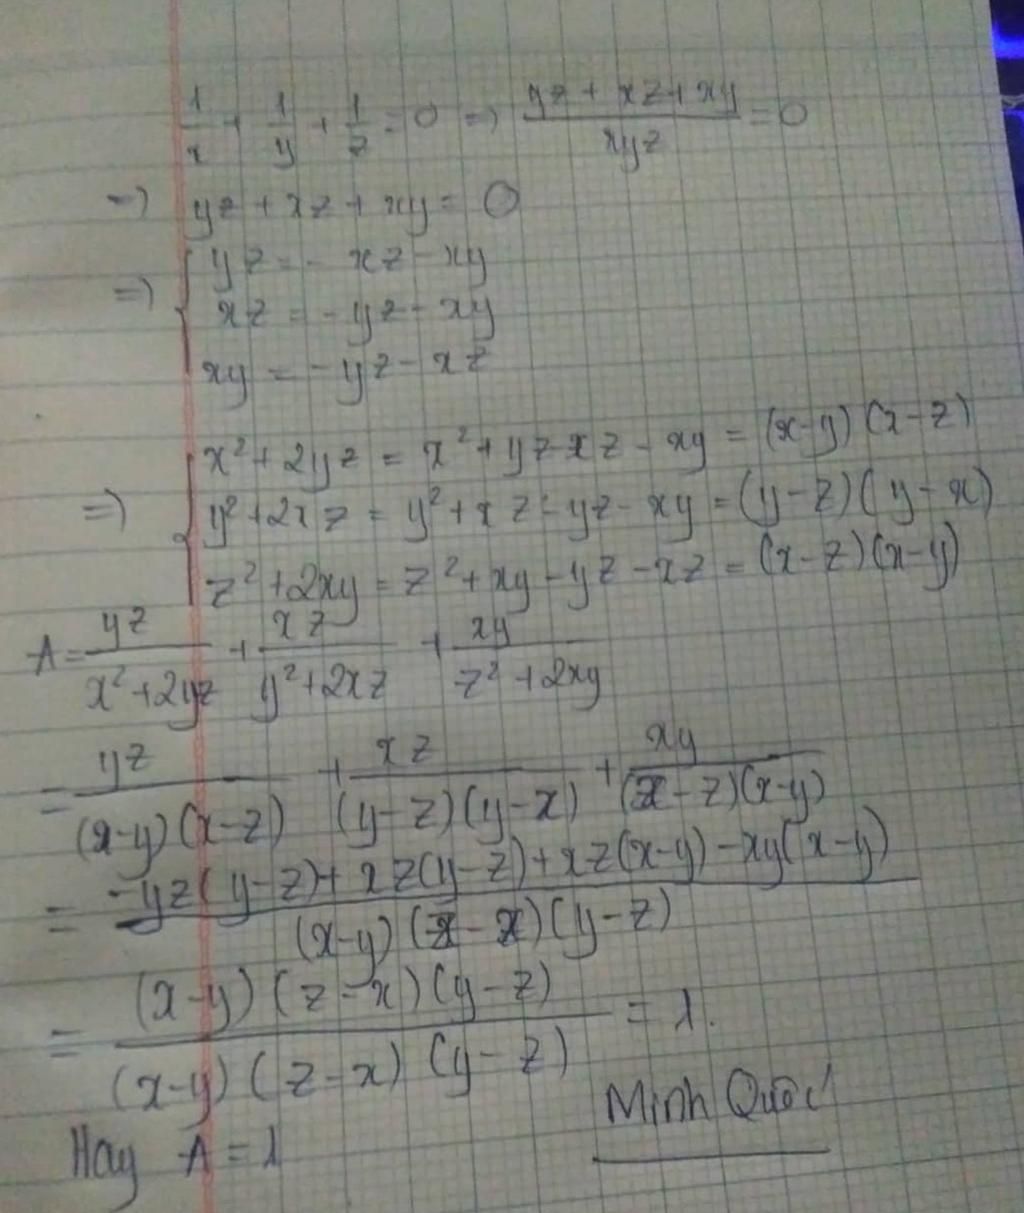 1/x + 1/y + 1/z = 0 => (yz + xz + xy)/xyz = 0
=> yz + xz + xy = 0
=> { yz = - xz - xy
xz = - yz - xy
xy = - yz - xz
=> { x² + 2yz = x² + yz - xz - xy = (x-y)(x-z)
y² + 2xz = y² + xz - yz - xy = (y-z)(y-x)
z² + 2xy = z² + xy - yz - xz = (x-z)(x-y)
A = yz/(x² + 2yz) + xz/(y² + 2xz) + xy/(z² + 2xy)
= yz/((x-y)(x-z)) + xz/((y-z)(y-x)) + xy/((x-z)(x-y))
= (-yz(y-z) + xz(y-z) + xz(x-y) - xy(x-y))/((x-y)(z-x)(y-z))
= ((x-y)(z-x)(y-z))/((x-y)(z-x)(y-z)) = 1.
Minh Quốc
Hay A = 1